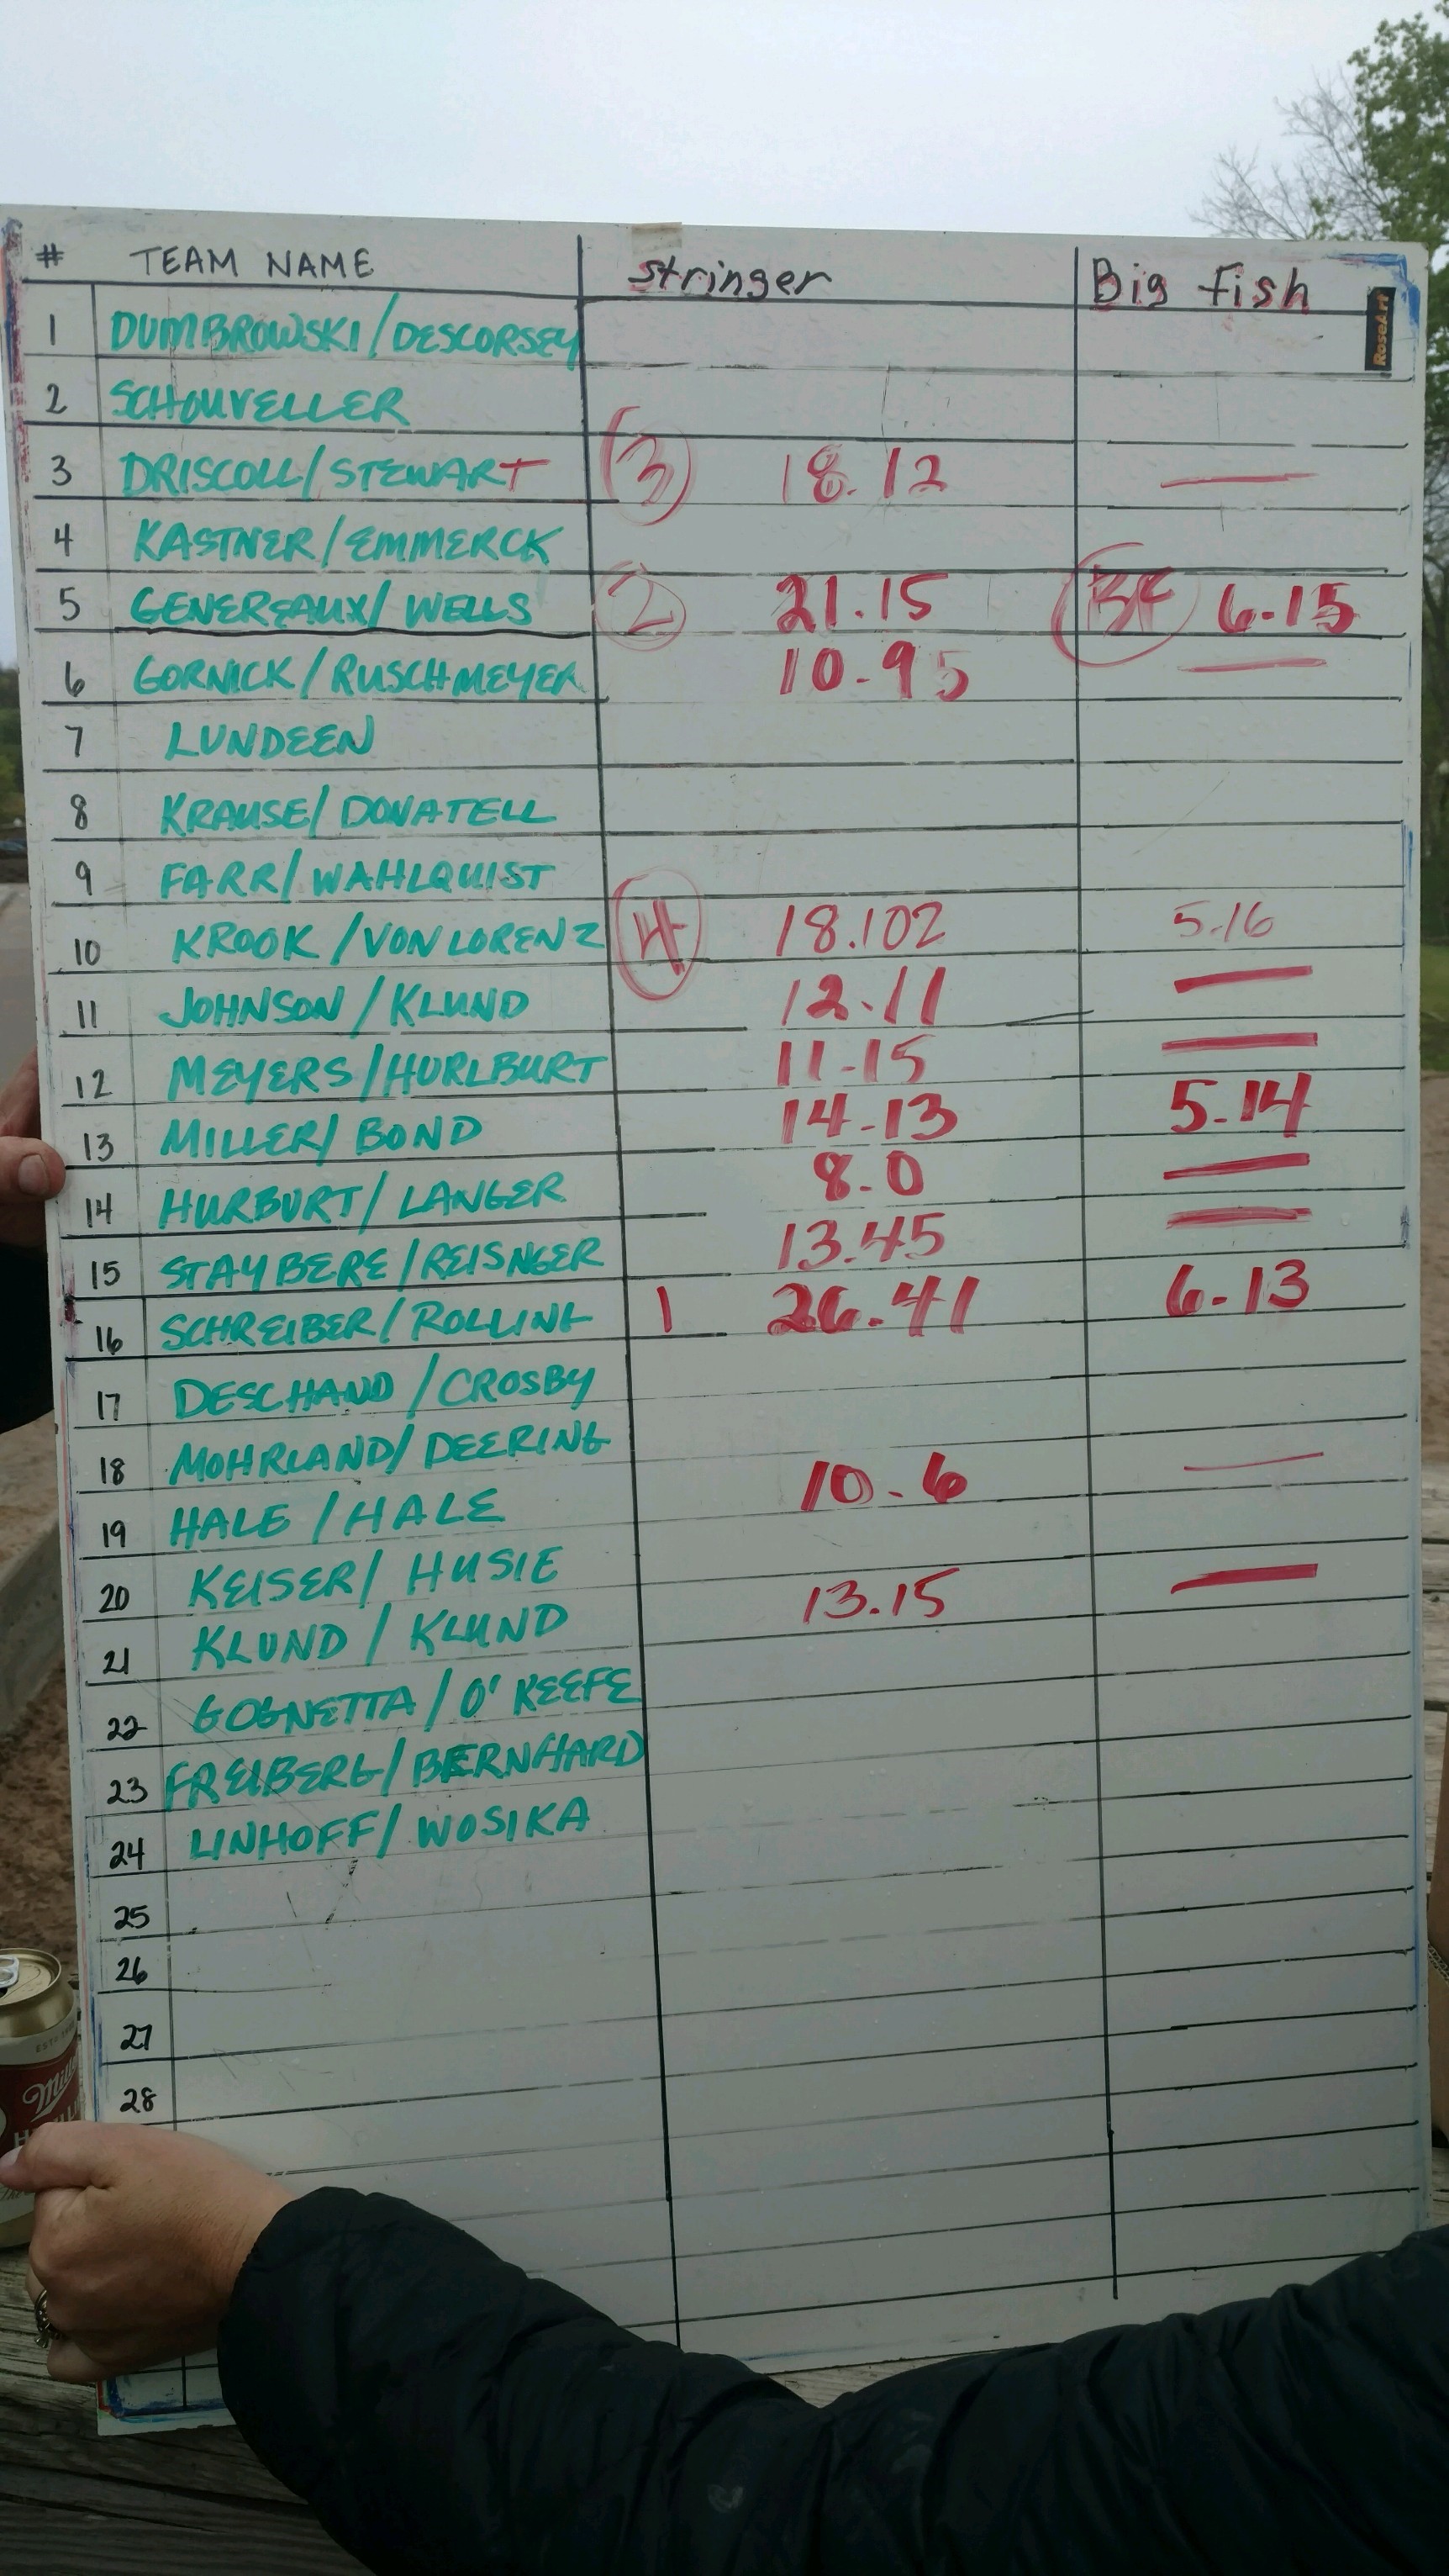 # TEAM NAME stringer Big Fish
RoseArt
1 DUMBROWSKI/DESCORSEY
2 SCHOUVELLER
3 DRISCOLL/STEWART 3 18.12 —
4 KASTNER/EMMERCK
5 GENEREAUX/WELLS 2 21.15 BF 6.15
6 GORNICK/RUSCHMEYER 10.95 —
7 LUNDEEN
8 KRAUSE/DONATELL
9 FARR/WAHLQUIST
10 KROOK/VONLORENZ 4 18.102 5.16
11 JOHNSON/KLUND 12.11 —
12 MEYERS/HURLBURT 11.15 —
13 MILLER/BOND 14.13 5.14
14 HURBURT/LANGER 8.0 —
15 STAYBERE/REISNGER 13.45 —
16 SCHREIBER/ROLLING 1 26.41 6.13
17 DESCHAND/CROSBY
18 MOHRLAND/DEERING
19 HALE/HALE 10.6 —
20 KEISER/HUSIE
21 KLUND/KLUND 13.15 —
22 GOGNETTA/O'KEEFE
23 FREIBERG/BERNHARD
24 LINHOFF/WOSIKA
25
26
27
28